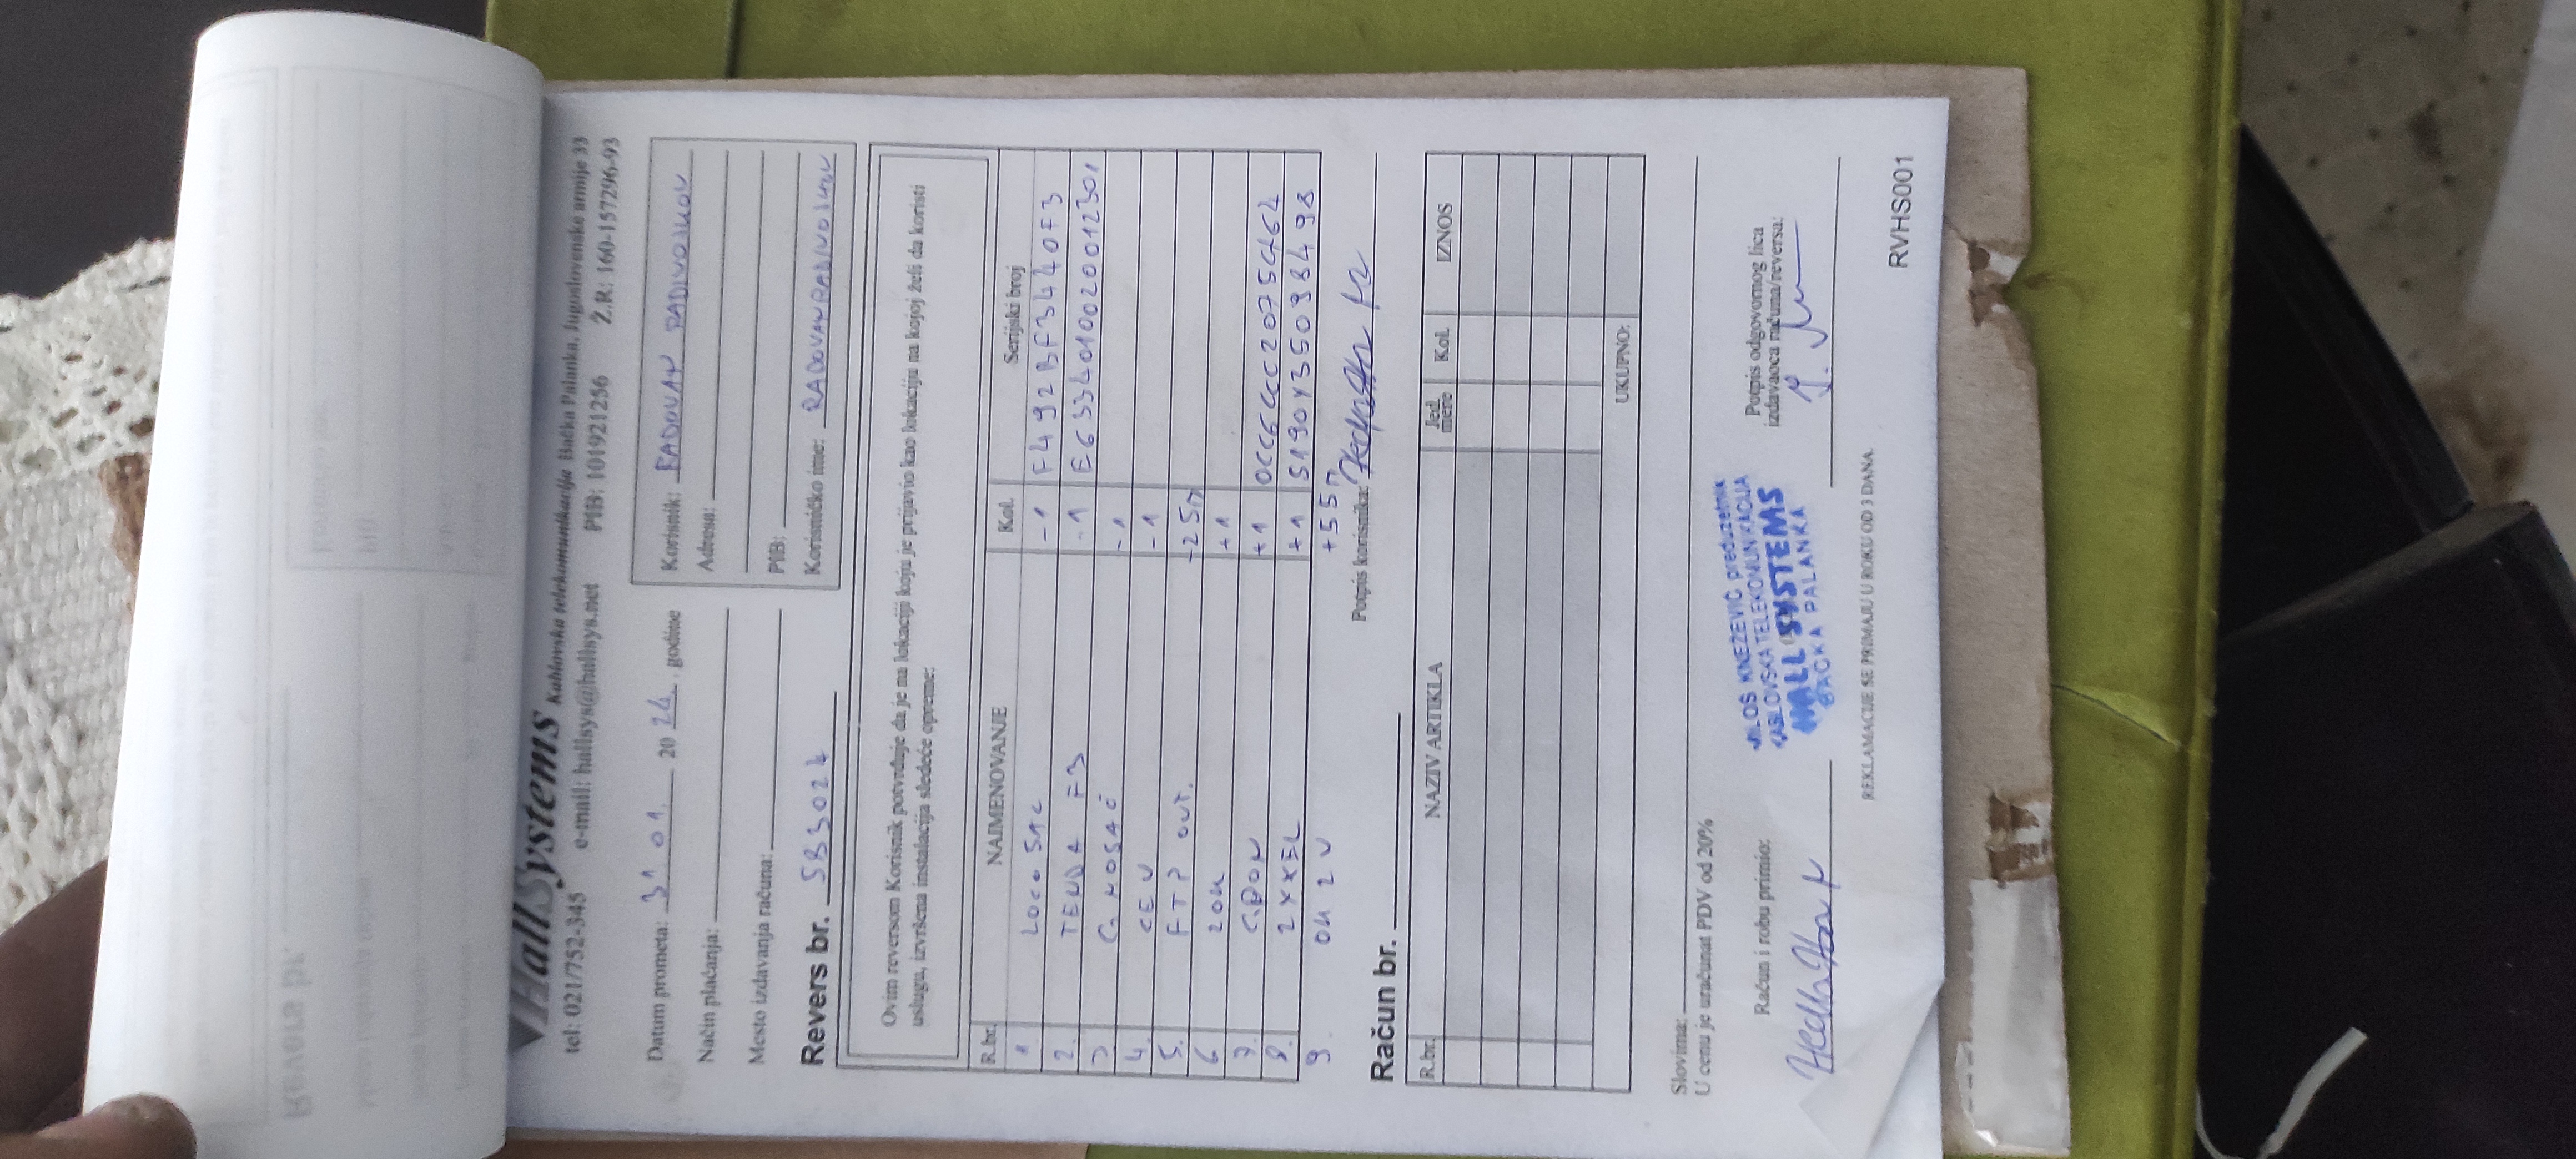 HallSystems Kablovska telekomunikacija Bačka Palanka, Jugoslovenske armije 33
tel: 021/752-345 e-mail: hallsys@hallsys.net PIB: 101921256 Ž.R: 160-157296-93
Datum prometa: 31 01. 20 24. godine
Način plaćanja:
Mesto izdavanja računa:
Korisnik: RADOVAN RADIVOJKOV
Adresa:
PIB:
Korisničko ime: RADOVANRADIVOJKOV
Revers br. 583024
Ovim reversom Korisnik potvrđuje da je na lokaciji koju je prijavio kao lokaciju na kojoj želi da koristi
uslugu, izvršena instalacija sledeće opreme:
R.br. NAIMENOVANJE Kol. Serijski broj
1 LOCO 5AC -1 F492BF3440F3
2. TENDA F3 -1 E6334010020012301
3 G NOSAČ -1
4. CEV -1
5. FTP OUT. -25m
6 ZOK +1
7. GPON +1
8. ZYXEL +1 S190Y35098498
9. OK 2V +55m
Potpis korisnika:
Račun br.
R.br. NAZIV ARTIKLA Jed. mere Kol. IZNOS
UKUPNO:
Slovima:
U cenu je uračunat PDV od 20%
Račun i robu primio:
MILOŠ KNEŽEVIĆ preduzetnik
KABLOVSKA TELEKOMUNIKACIJA
HALL SYSTEMS
BAČKA PALANKA
Potpis odgovornog lica
izdavaoca računa/reversa:
REKLAMACIJE SE PRIMAJU U ROKU OD 3 DANA.
RVHS001